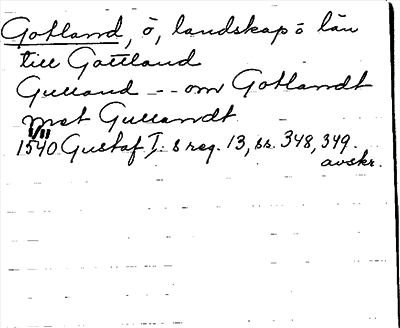 Gotland, ö, landskap o län
till Gottland
Gulland -- om Gotlandt
met Gullandt
1/11
1540 Gustaf I:s reg. 13, ss. 348, 349.
avskr.